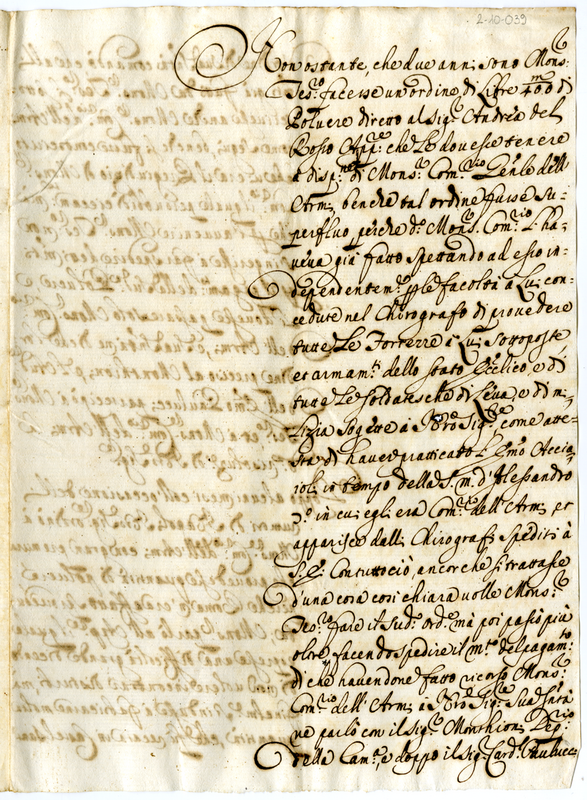 2-10-039
Non ostante, che due anni sono Mons.re
Tes.ro facesse un ordine di Libre 400 di
Poluere diretto al Sig.r Andrea del
Rosio App.re che Le douesse tenere
a disp.ne di Mons.re Com.rio Gen.le dell'
Armi, benche tal ordine fusse su-
perfluo perche d.o Mons.re Com.rio l'ha-
ueua già fatto spettando ad esso in-
dependentem.te p le facoltà a Lui con-
cedute nel Chirografo di prouedere
tutte Le Fortezze a Lui Sottoposte
et armam.ti dello Stato Eccl.ico, e di
tutte Le Soldatesche di Leua, e di mi-
lizia Sogette à N.ro Sig.re, come atte-
sta di hauer pratticato l'Em.o Accia-
ioli in tempo della S. m. d'Alessandro
in cui egli era Com.rio dell'Armi, et
apparisce dalli Chirografi Spediti à
S. E. Contuttociò, ancorche si trattasse
d'una cosa cosi chiara uolle Mons.re
Tes.ro fare il Sud.o ord.e mà poi passò più
oltre facendo spedire il m.to del pagam.to
di che hauendone fatto ricorso Mons.re
Com.rio dell'Armi à N.ro Sig.re Sua San.tà
ne parlò con il Sig.r Monthioni Dep.rio
della Cam.a, e doppo il Sig.r Card. Paulucci